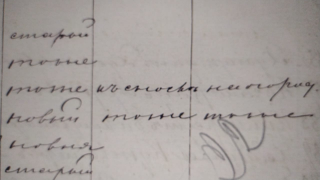 старый
тоже
тоже къ сносу на огород.
новый тоже тоже
новыя
старый